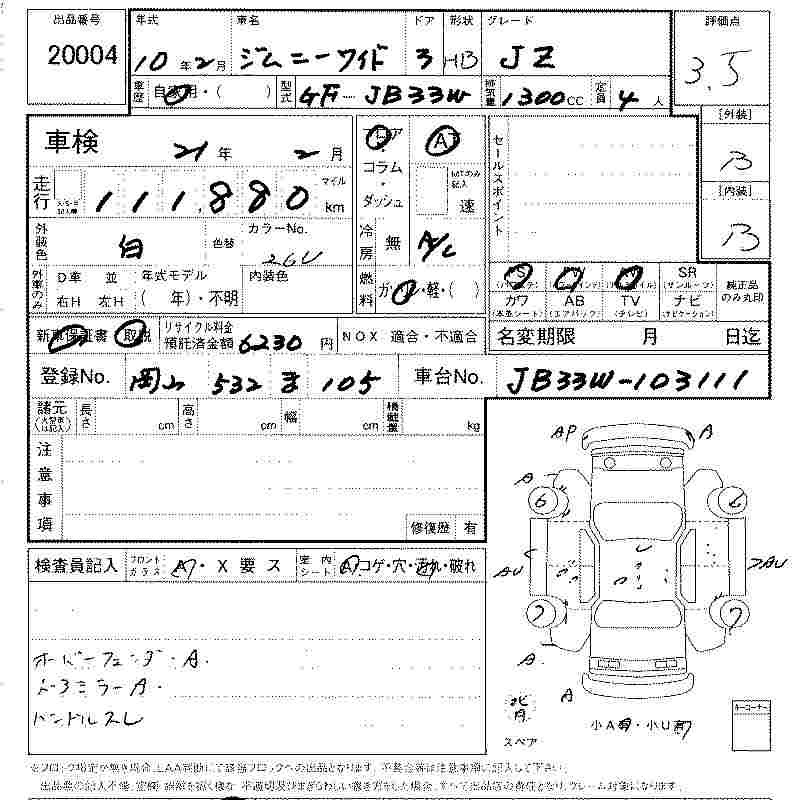 出品番号 20004
年式 車名 ドア 形状 グレード 評価点
10年2月 ジムニーワイド 3 HB JZ 3.5
車歴 自家用・( ) 型式 GF-JB33W 排気量 1300cc 定員 4人
[外装]
B
[内装]
B
車検 21年 2月
フロア AT
コラム
ダッシュ
MTのみ記入 速
セールスポイント
走行 111,880 マイル km
外装色 白 色替 カラーNo. 26U
冷房 無 A/C
外車のみ D車 並 年式モデル 内装色
右H 左H ( 年)・不明
燃料 ガソリン・軽・( )
PS PW SR 純正品のみ丸印
(パワステ) (サンルーフ)
カワ AB TV ナビ
(本革シート) (エアバック) (テレビ) (ナビゲーション)
新車保証書 取説 リサイクル料金預託済金額 6230円 NOX 適合・不適合
名変期限 月 日迄
登録No. 岡山 532 ま 105 車台No. JB33W-103111
諸元 長さ cm 高さ cm 幅 cm 積載量 kg
注意事項
修復歴 有
検査員記入 フロントガラス A・X要ス 室内シート A コゲ・穴・汚れ・破れ
オーバーフェンダーA.
ドアミラーA.
ハンドルスレ
AP A
A
6 6
AU AU
7 7
A
A
スペア
小A有・小U有
キーコーナー